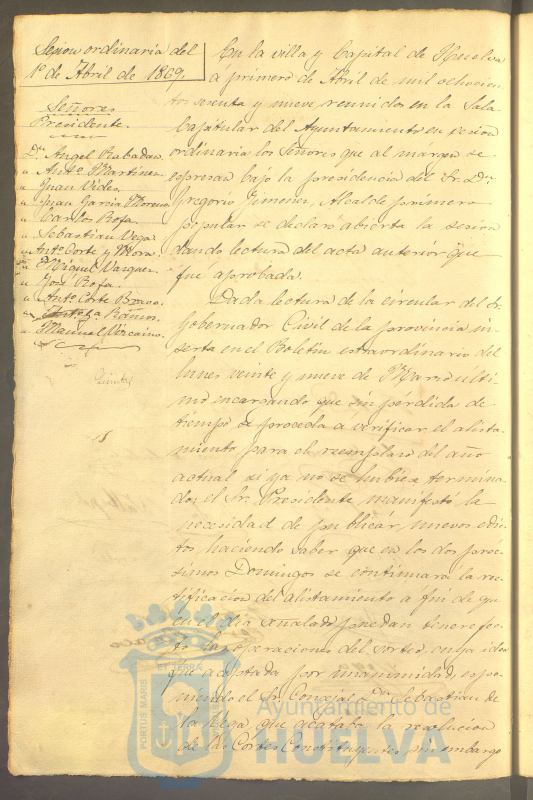 Sesion ordinaria del
1º de Abril de 1869.
Señores
Presidente.
Dn. Angel Rabadan.
" Antº Martinez
" Juan Vides
" Juan Garcia Moreno
" Carlos Rofa.
" Sebastian Vega.
" Antº Corte y Mora.
" Miguel Vazquez.
" José Rofa.
" Antº Corte Bravo.
" Ramos.
" Manuel Vizcaino.
Quintas
En la villa y Capital de Huelva
a primero de Abril de mil ochocien-
tos sesenta y nueve, reunidos en la Sala
Capitular del Ayuntamiento en sesion
ordinaria los Señores que al márgen se
espresan bajo la presidencia del Sr. Dn.
Gregorio Jimenez, Alcalde primero
popular se declaró abierta la sesion
dando lectura del acta anterior que
fué aprobada.
Dada lectura de la circular del Sr.
Gobernador Civil de la provincia in-
serta en el Boletin estraordinario del
lunes veinte y nueve de Marzo últi-
mo encargando que sin pérdida de
tiempo se proceda a verificar el alista-
miento para el reemplazo del año
actual si ya no se hubiese termina-
do; el Sr. Presidente manifestó la
necesidad de publicar nuevos edic-
tos haciendo saber que en los dos proc-
simos Domingos se continuará la rec-
tificacion del alistamiento a fin de que
en el dia señalado puedan tener efec-
to las operaciones del sorteo, cuya idea
fue adoptada por unanimidad, espo-
niendo el Sr. Concejal Dn. Sebastian de
la Vega que acataba la resolucion
de las Cortes Constituyentes, sin embargo
PORTUS MARIS ET TERRÆ
Ayuntamiento de
HUELVA